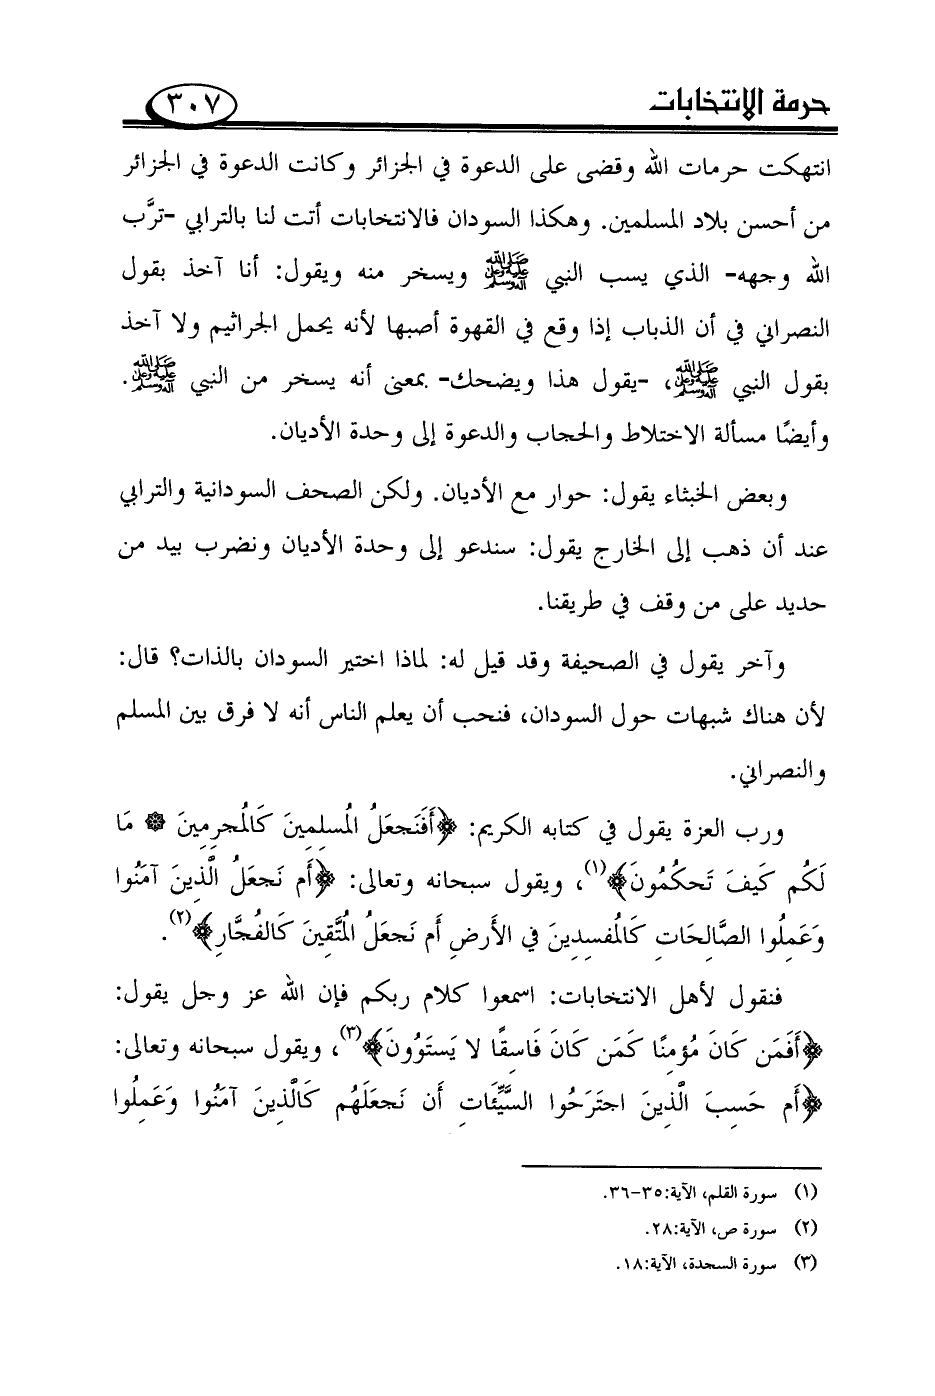 حرمة الانتخابات ٣٠٧
انتهكت حرمات الله وقضى على الدعوة في الجزائر وكانت الدعوة في الجزائر
من أحسن بلاد المسلمين. وهكذا السودان فالانتخابات أتت لنا بالترابي -ترَّب
الله وجهه- الذي يسب النبي ﷺ ويسخر منه ويقول: أنا آخذ بقول
النصراني في أن الذباب إذا وقع في القهوة أصبها لأنه يحمل الجراثيم ولا آخذ
بقول النبي ﷺ، -يقول هذا ويضحك- بمعنى أنه يسخر من النبي ﷺ.
وأيضًا مسألة الاختلاط والحجاب والدعوة إلى وحدة الأديان.
وبعض الخبثاء يقول: حوار مع الأديان. ولكن الصحف السودانية والترابي
عند أن ذهب إلى الخارج يقول: سندعو إلى وحدة الأديان ونضرب بيد من
حديد على من وقف في طريقنا.
وآخر يقول في الصحيفة وقد قيل له: لماذا اختير السودان بالذات؟ قال:
لأن هناك شبهات حول السودان، فنحب أن يعلم الناس أنه لا فرق بين المسلم
والنصراني.
ورب العزة يقول في كتابه الكريم: ﴿أَفَنَجعَلُ المُسلِمِينَ كَالمُجرِمِينَ ۞ مَا
لَكُم كَيفَ تَحكُمُونَ﴾(١)، ويقول سبحانه وتعالى: ﴿أَم نَجعَلُ الَّذِينَ آمَنُوا
وَعَمِلُوا الصَّالِحَاتِ كَالمُفسِدِينَ في الأَرضِ أَم نَجعَلُ المُتَّقِينَ كَالفُجَّارِ﴾(٢).
فنقول لأهل الانتخابات: اسمعوا كلام ربكم فإن الله عز وجل يقول:
﴿أَفَمَن كَانَ مُؤمِنًا كَمَن كَانَ فَاسِقًا لا يَستَوُونَ﴾(٣)، ويقول سبحانه وتعالى:
﴿أَم حَسِبَ الَّذِينَ اجتَرَحُوا السَّيِّئَاتِ أَن نَجعَلَهُم كَالَّذِينَ آمَنُوا وَعَمِلُوا
(١) سورة القلم، الآية:٣٥-٣٦.
(٢) سورة ص، الآية:٢٨.
(٣) سورة السجدة، الآية:١٨.